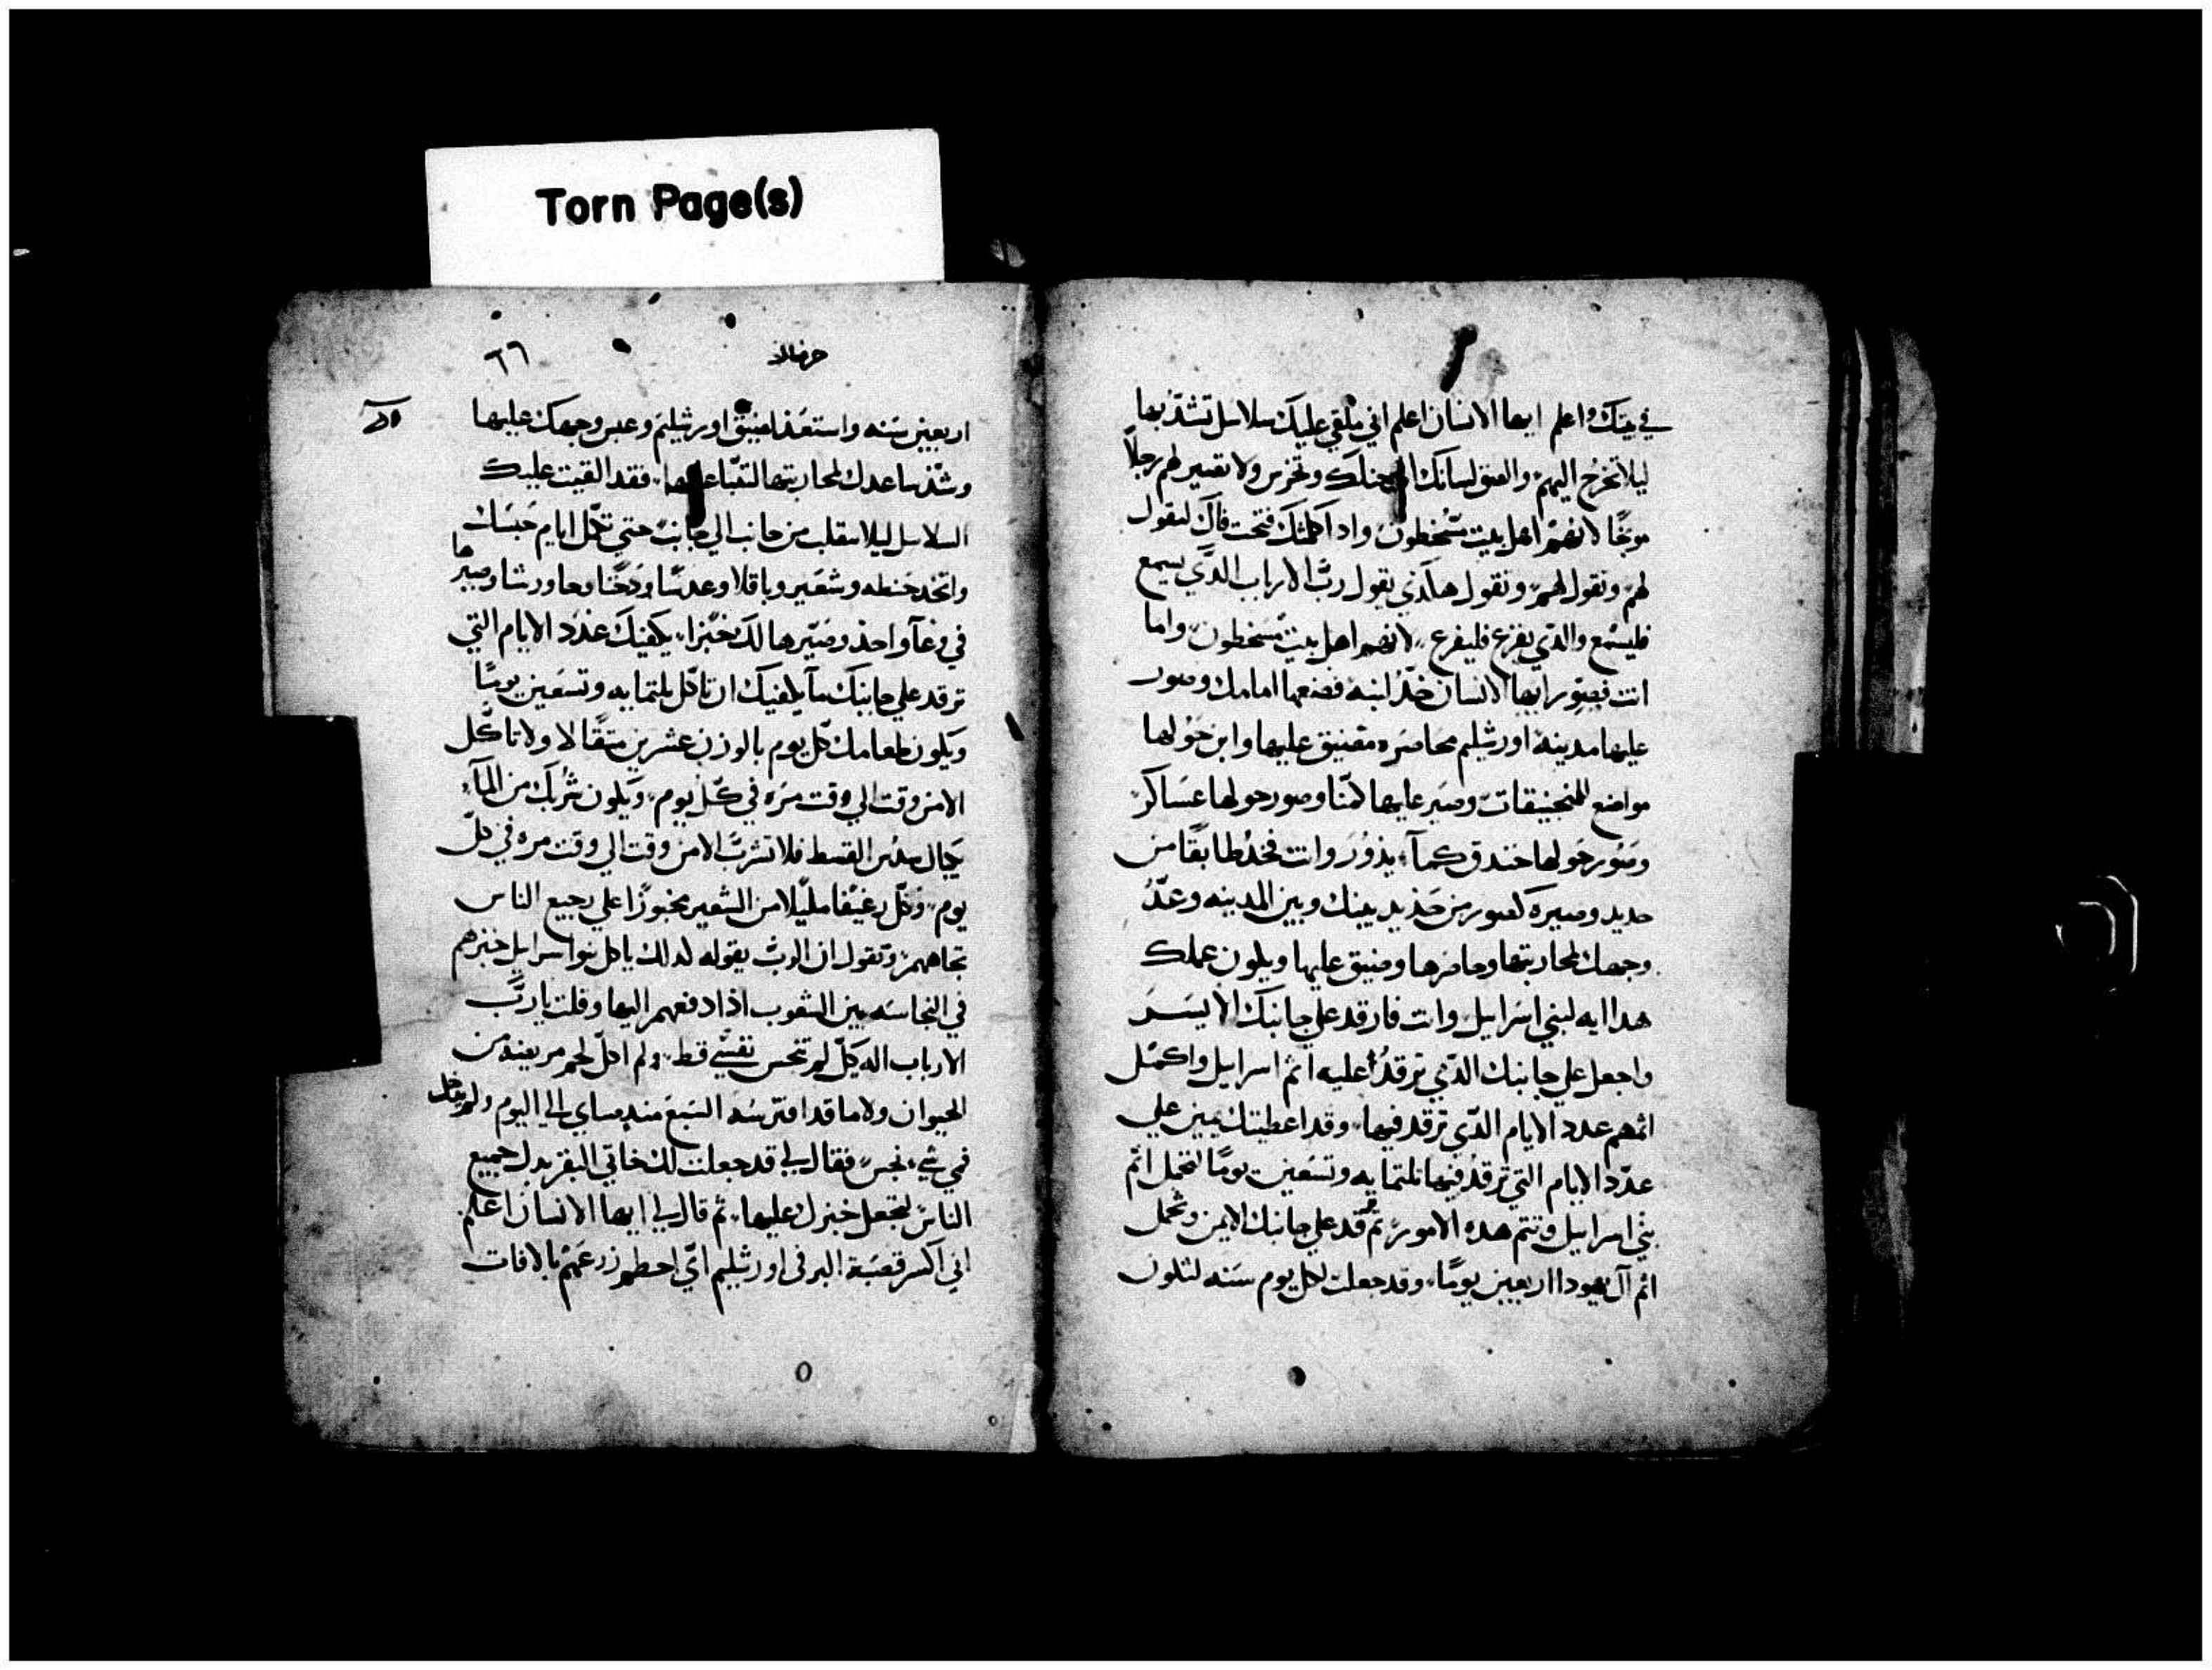 Torn Page(s)
في بيتك واعلم ايها الانسان اعلم اني ملقي عليك سلاسل تشد بها
ليلا تخرج اليهم والصق لسانك الي حنكك وتخرس ولا تصير لهم رجلاً
موبخًا لانهم اهل بيت مسخطون واذا كلمتك فتحت فاك لتقول
لهم وتقول لهم وتقول هكذي يقول رب الارباب الذي يسمع
فليسمع والذي يفزع فليفزع لانهم اهل بيت مسخطون واما
انت فصور ايها الانسان خذ لبنة فضعها امامك وصور
عليها مدينة اورشليم محاصره مضيق عليها وابن حولها
مواضع للمنجنيقات وصير عليها كمنًا وصور حولها عساكر
وصور حولها خندق كمآ يدور وانت فخد طابقًا من
حديد وصيره كسور من حديد بينك وبين المدينه وعد
وجهك لمحاربتها وحاصرها وضيق عليها ويكون عملك
هدا ايه لبني اسرايل وانت فارقد علي جانبك الايسر
واجعل علي جانبك الذي ترقد عليه اثم اسرايل واكمل
اثمهم عدد الايام الذي ترقد فيها وقد اعطيتك يمين علي
عدد الايام التي ترقد فيها تلتمايه وتسعين يومًا لتحمل اثم
بني اسرايل وتتم هده الامور ثم ترقد علي جانبك الايمن وتحمل
اثم آل يهودا اربعين يومًا وقد جعلت لكل يوم سنه لتكون
حزقيال
٦٦
اربعين سنه واستعد لضيق اورشليم وعبس وجهك عليها
وشد ساعدك لمحاربتها لتتنبا عليها فقد القيت عليك
السلاسل ليلا تنقلب من جانب الي جانب حتي تكمل ايام حبسك
واتخد حنطه وشعير وباقلا وعدسًا ودخنًا وجاورشا وصيرها
في وعآ واحد وصيرها لك خبزا يكفيك عدد الايام التي
ترقد علي جانبك مآ يكفيك ان تاكل تلتمايه وتسعين يومًا
ويكون طعامك كل يوم بالوزن عشرين متقالا ولا تاكل
الا من وقت الي وقت مره في كل يوم ويكون شربك من المآء
بكيال سدس القسط فلا تشرب الا من وقت الي وقت مره في كل
يوم وكل رغيفا مليلا من الشعير مخبوزًا علي رجيع الناس
تجاههم وتقول ان الرب يقوله لدلك ياكل بنوا اسرايل خبزهم
في النجاسه بين الشعوب اذا دفعهم اليها وقلت يا رب
الارباب اله كل لم تنجس نفسي قط ولم اكل لحم مريضة من
الحيوان ولا ما قد افترسه السبع مند صباي الي اليوم ولم يدخل
في شيء نجس فقال لي قد جعلت لك خاتي البقر بدل جميع
الناس لتجعل خبزك عليها ثم قال لي ايها الانسان اعلم
اني اكسر قصبة البر في اورشليم اي احطم زرعهم بالافات